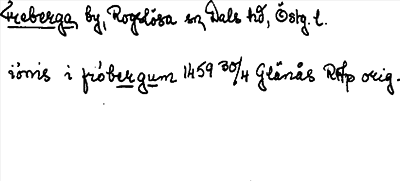 Freberga, by, Rogslösa sn, Dals hd, Östg. l.
i ömis i fröbergum 1459 30/4 Glänås RAp orig.